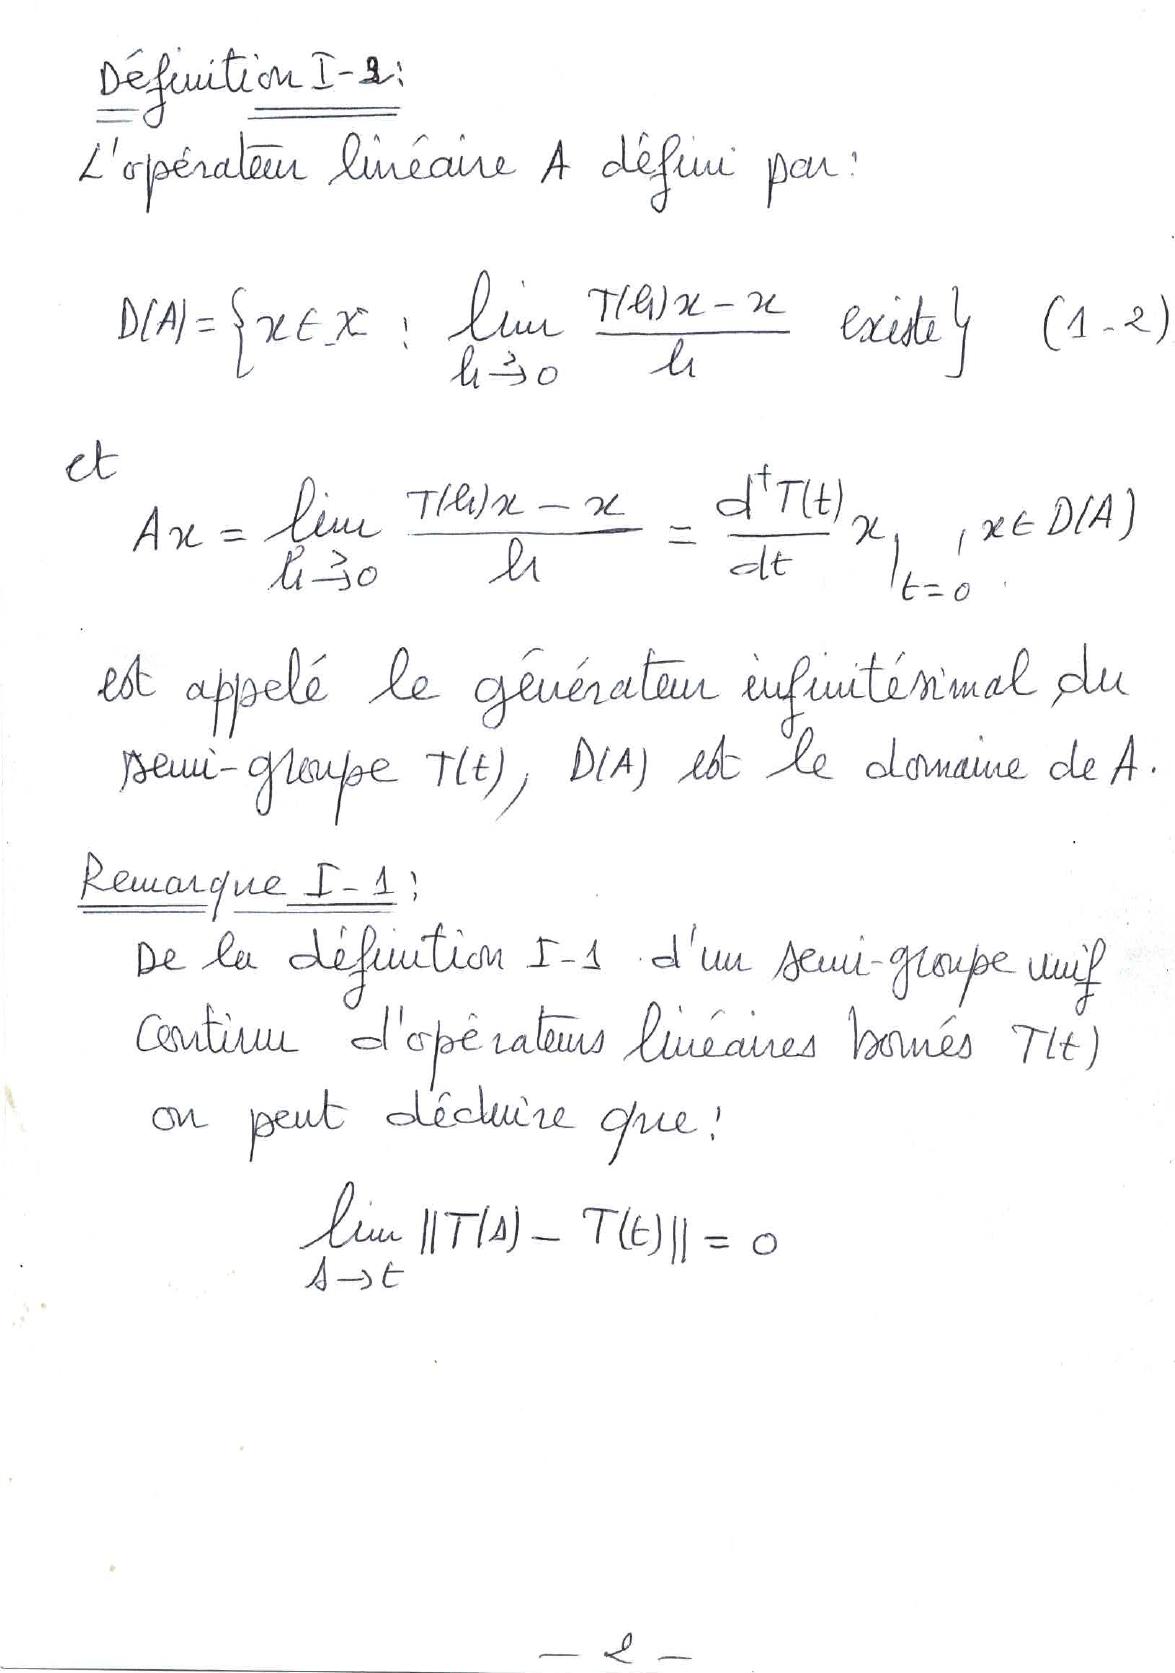 Définition I-2:
L'opérateur linéaire A défini par:
D(A) = {x ∈ X : lim_{h →^> 0} (T(h)x - x)/h existe} (1-2)
et
Ax = lim_{h →^> 0} (T(h)x - x)/h = d⁺T(t)/dt x|_{t=0}, x ∈ D(A)
est appelé le générateur infinitésimal du
semi-groupe T(t), D(A) est le domaine de A.
Remarque I-1:
De la définition I-1 d'un semi-groupe unif
continu d'opérateurs linéaires bornés T(t)
on peut déduire que:
lim_{s→t} ||T(s) - T(t)|| = 0
- 2 -